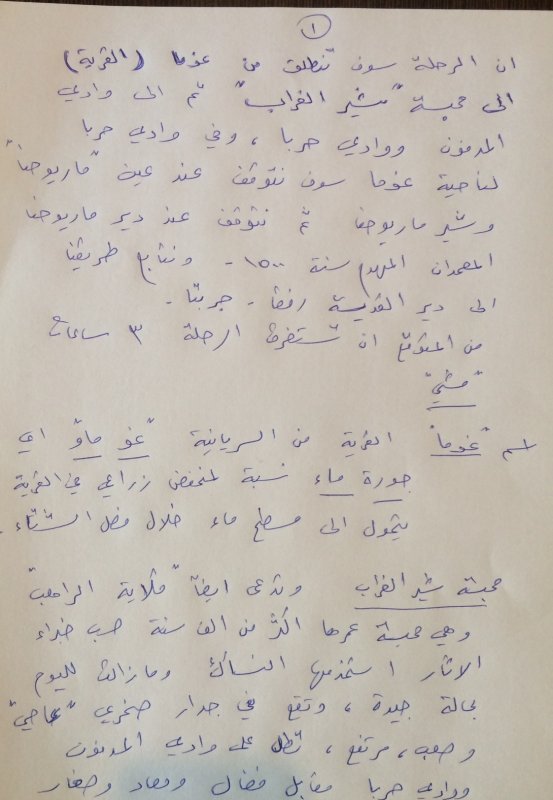 ١
ان الرحلة سوف تنطلق من غوما (القرية)
الى محبسة "شير الغراب" ثم الى وادي
المدفون ووادي حربا ، وفي وادي حربا
لناحية غوما سوف نتوقف عند عين "مار يوحنا"
وشير مار يوحنا ثم نتوقف عند دير مار يوحنا
المعمدان المهدم سنة ١٥٠٠ - ونتابع طريقنا
الى دير القديسة رفقا - جربتا -
من المتوقع ان تستغرق الرحلة ٣ ساعات
"مشي"
اسم "غوما" القرية من السريانية "غو ماو" اي
جورة ماء نسبة لمنخفض زراعي في القرية
يتحول الى مسطح ماء خلال فصل الشتاء .
محبسة شير الغراب وتدعى ايضاً "قلاية الراهب"
وهي محبسة عمرها اكثر من الف سنة حسب خبراء
الاثار استخدمها النساك ومازالت لليوم
بحالة جيدة ، وتقع في جدار صخري "عاصي"
وصعب ، مرتفع ، تطل على وادي المدفون
ووادي حربا مقابل وصغار